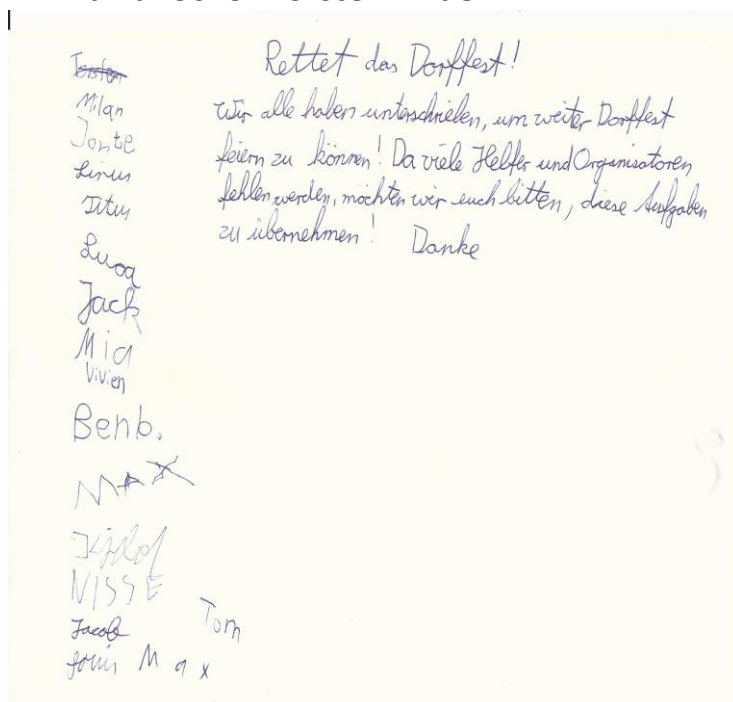 Rettet das Dorffest!
Wir alle haben unterschrieben, um weiter Dorffest
feiern zu können! Da viele Helfer und Organisatoren
fehlen werden, möchten wir euch bitten, diese Aufgaben
zu übernehmen! Danke
Milan
Jonte
Linus
Titus
Luca
Jack
Mia
Vivien
Benb.
MAX
NISSE
Jacob
Tom
Max